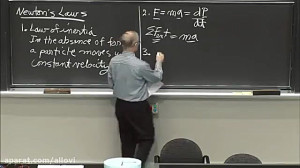 Newton's Laws
1. Law of inertia
In the absence of for
a particle moves w
constant velocity
2. F = ma = dP/dt
ΣFext = ma
3.
aparat.com/allovi